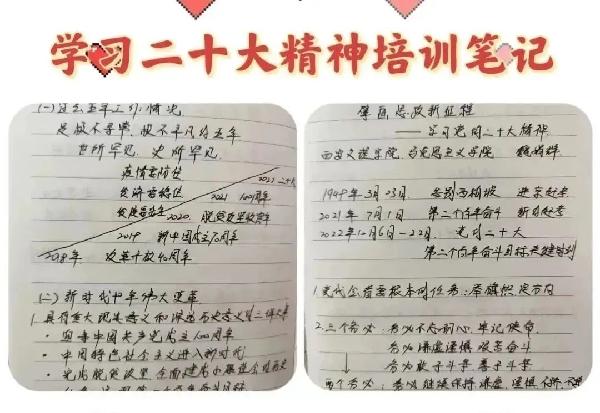 学习二十大精神培训笔记
(一)过去五年工作情况
是极不寻常、极不平凡的五年
世所罕见、史所罕见
疫情要防住
经济要稳住
发展要安全
2022 二十大
2021 100周年
2020 脱贫攻坚收官年
2019 新中国成立70周年
2018年 改革开放40周年
(二)新时代十年伟大变革
1.具有重大现实意义和深远历史意义的三件大事
·迎来中国共产党成立100周年
·中国特色社会主义进入新时代
·完成脱贫攻坚、全面建成小康社会的历史
奋进新征程
——学习党的二十大精神
西安文理学院 马克思主义学院
1949年3月23日 西柏坡 进京赶考
2021年7月1日 第二个百年奋斗 新的赶考
党的二十大
第二个百年奋斗目标关键时刻
2.三个务必:务必不忘初心、牢记使命
务必谦虚谨慎、艰苦奋斗
务必敢于斗争、善于斗争
两个务必:务必继续保持谦虚、谨慎